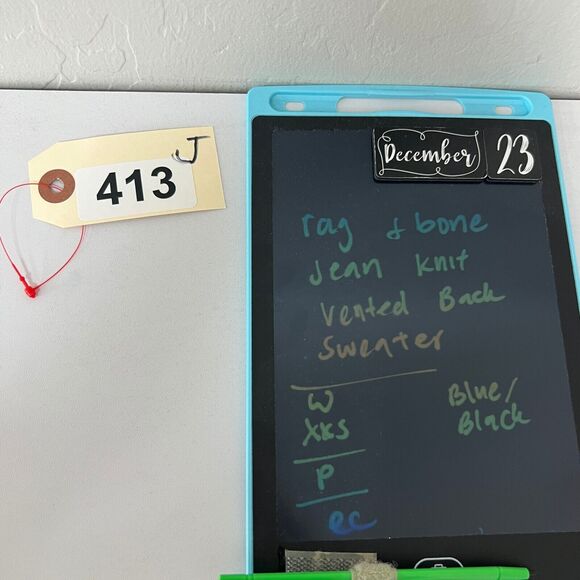 J
413
December 23
rag & bone
Jean Knit
Vented Back
Sweater
W
XXS
Blue/
Black
P
EC